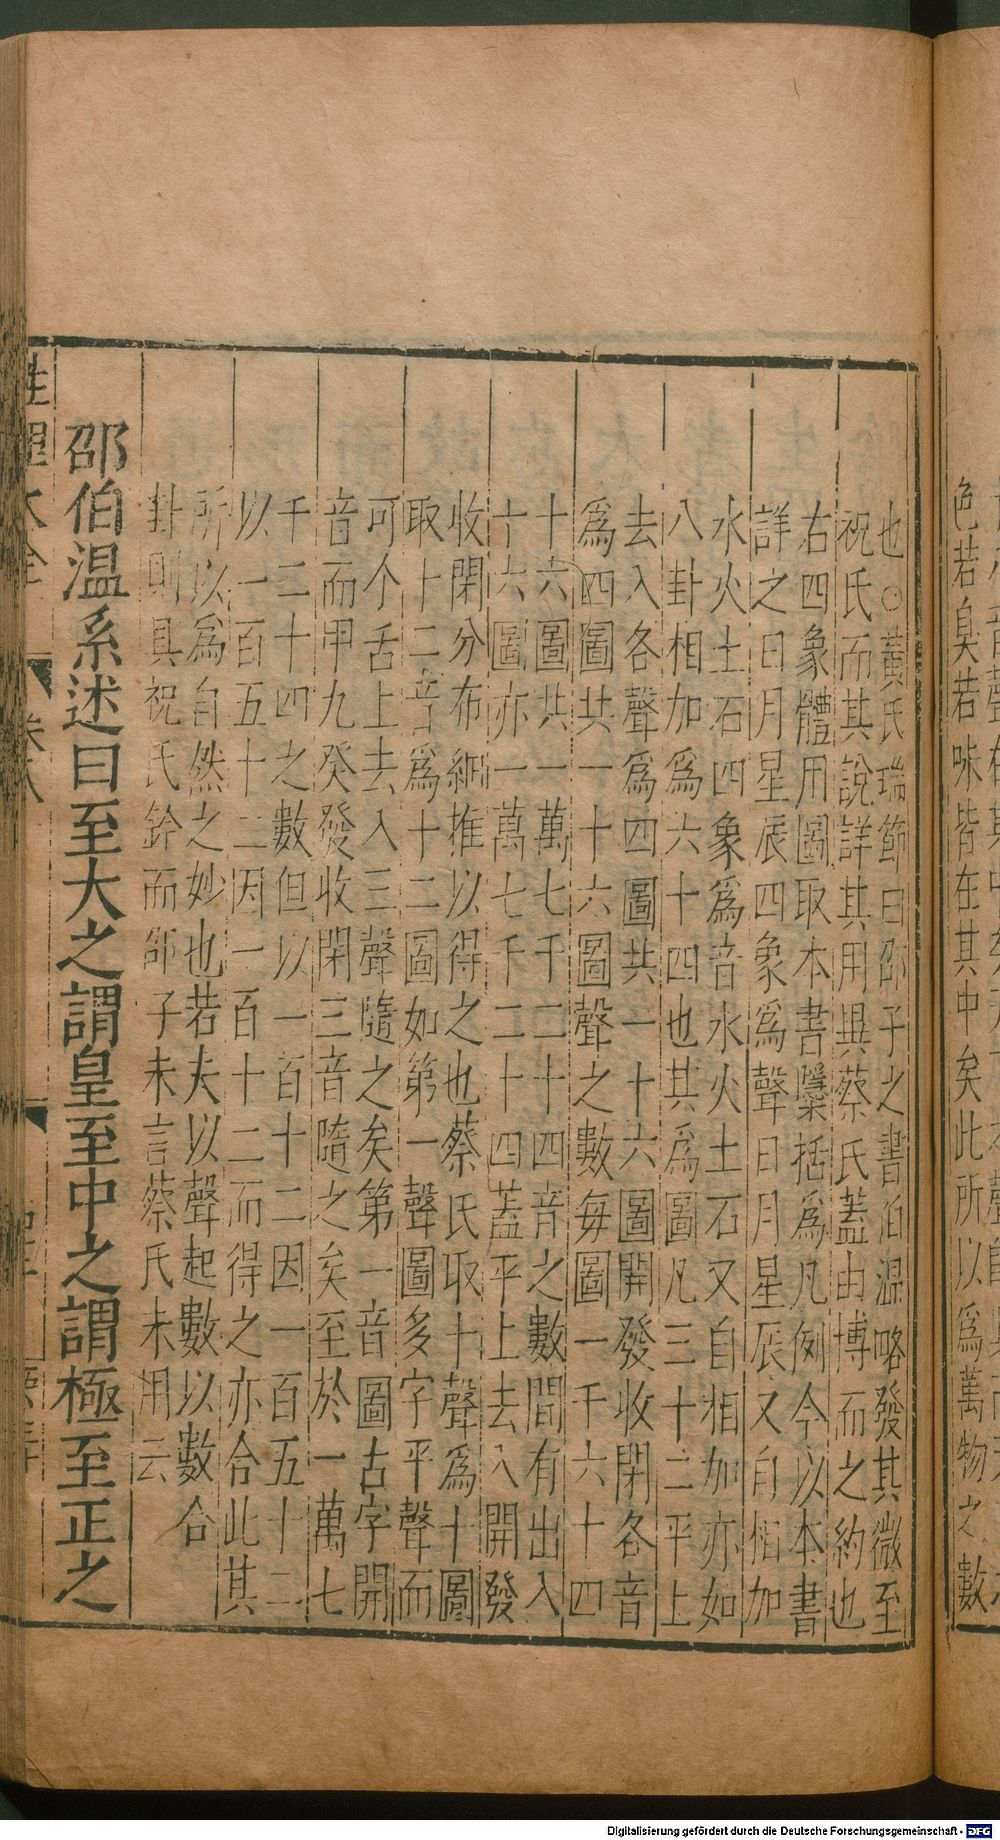 色若臭若味皆在其中矣此所以爲萬物之數
也○黃氏瑞節曰邵子之書伯温略發其微至
祝氏而其說詳其用與蔡氏蓋由博而之約也
右四象體用圖取本書檃括爲凡例今以本書
詳之日月星辰四象爲聲日月星辰又自相加
水火土石四象爲音水火土石又自相加亦如
八卦相加爲六十四也其爲圖凡三十二平上
去入各聲爲四圖共一十六圖開發收閉各音
爲四圖共一十六圖聲之數每圖一千六十四
十六圖共一萬七千二十四音之數間有出入
十六圖亦一萬七千二十四蓋平上去入開發
收閉分布細推以得之也蔡氏取十聲爲十圖
取十二音爲十二圖如第一聲圖多字平聲而
可个舌上去入三聲隨之矣第一音圖古字開
音而甲九癸發收閉三音隨之矣至於一萬七
千二十四之數但以一百十二因一百五十二
以一百五十二因一百十二而得之亦合此其
所以爲自然之妙也若夫以聲起數以數合
卦則具祝氏鈐而邵子未言蔡氏未用云
邵伯温系述曰至大之謂皇至中之謂極至正之
性理大全
卷八
Digitalisierung gefördert durch die Deutsche Forschungsgemeinschaft - DFG